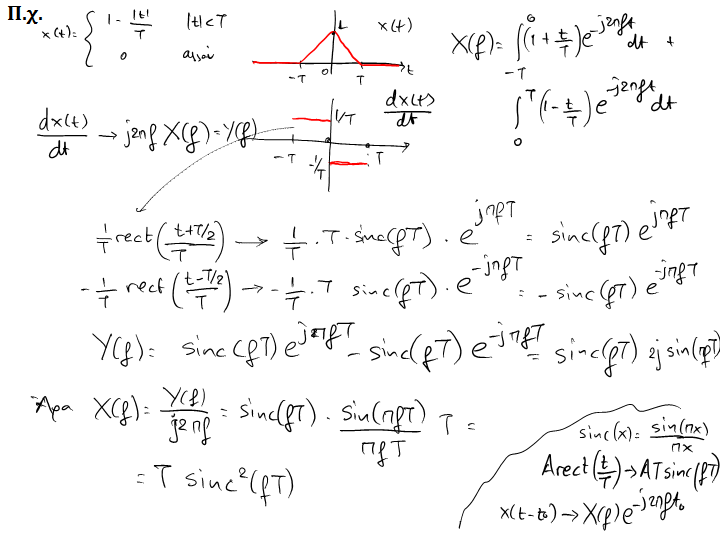 Π.χ.
x(t) = { 1 - |t|/T   |t| < T
0   αλλού
1   x(t)
-T   0   T   t
X(f) = ∫_{-T}^{0} (1 + t/T) e^{-j2πft} dt +
∫_{0}^{T} (1 - t/T) e^{-j2πft} dt
dx(t)/dt → j2πf X(f) = Y(f)
1/T   dx(t)/dt
-T   -1/T   T
1/T rect((t+T/2)/T) → 1/T · T · sinc(fT) · e^{jπfT} = sinc(fT) e^{jπfT}
-1/T rect((t-T/2)/T) → -1/T · T sinc(fT) · e^{-jπfT} = - sinc(fT) e^{-jπfT}
Y(f) = sinc(fT) e^{jπfT} - sinc(fT) e^{-jπfT} = sinc(fT) 2j sin(πfT)
Άρα X(f) = Y(f)/(j2πf) = sinc(fT) · sin(πfT)/(πfT) T =
= T sinc²(fT)
sinc(x) = sin(πx)/(πx)
A rect(t/T) → AT sinc(fT)
x(t-t₀) → X(f) e^{-j2πft₀}